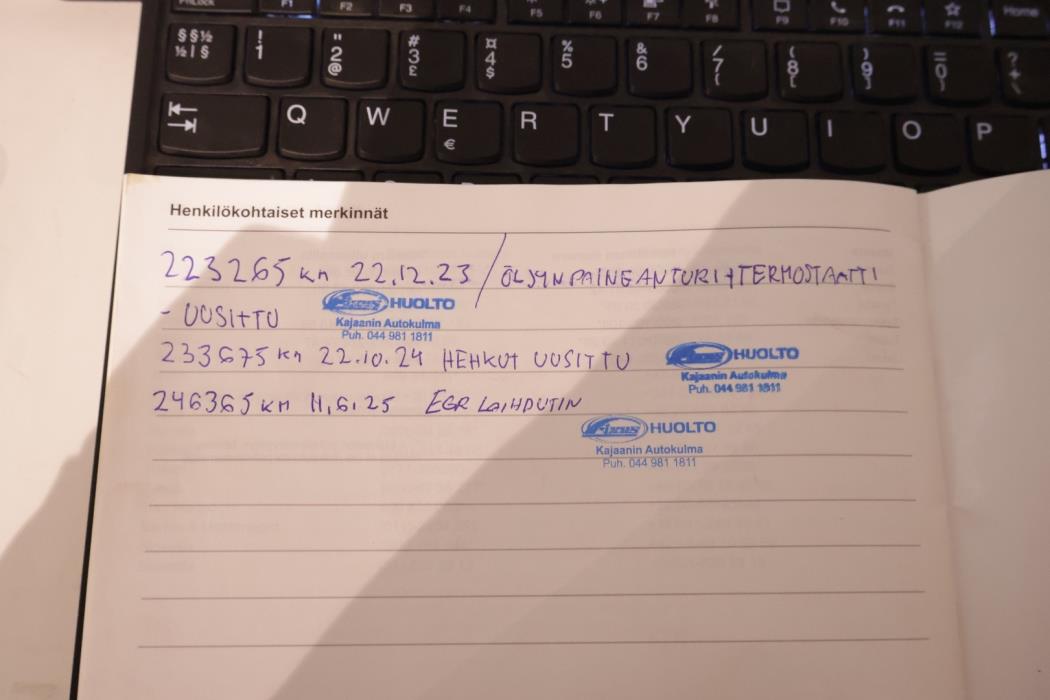 PrtLock F1 F2 F3 F4 F5 F6 F7 F8 F9 F10 F11 F12 Home
§ § ½ ! " # ¤ % & / ( ) = ?
½ | § 1 2 3 4 5 6 7 8 9 0 +
@ £ $ { [ ] }
Q W E R T Y U I O P
€
Henkilökohtaiset merkinnät
223265 km 22.12.23 / ÖLJYNPAINEANTURI+TERMOSTAATTI
- UUSITTU
Fixus HUOLTO
Kajaanin Autokulma
Puh. 044 981 1811
233675 km 22.10.24 HEHKUT UUSITTU
Fixus HUOLTO
Kajaanin Autokulma
Puh. 044 981 1811
246365 km 11.6.25 EGR LAIHDUTIN
Fixus HUOLTO
Kajaanin Autokulma
Puh. 044 981 1811